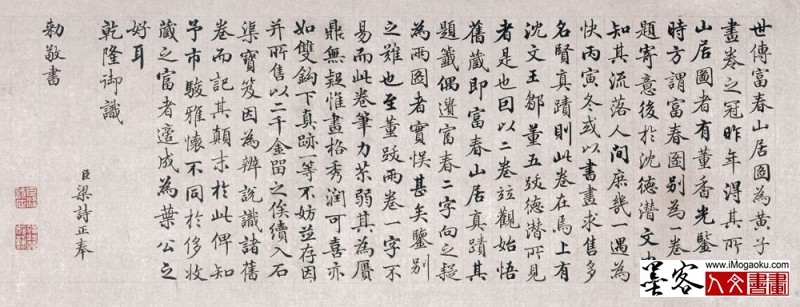 世傳富春山居圖為黃子
畫卷之冠昨年得其所
山居圖者有董香光鑒
時方謂富春圖別為一卷
題寄意後於沈德潛文
知其流落人間庶幾一遇為
快丙寅冬或以書畫求售多
名賢真蹟則此卷在焉上有
沈文王鄒董五跋德潛所見
者是也因以二卷並觀始悟
舊藏即富春山居真蹟其
題籤偶遺富春二字向之疑
為兩圖者實悞甚矣鑒別
之難也至董跋兩卷一字不
易而此卷筆力苶弱其為贋
鼎無疑惟畫格秀潤可喜亦
如雙鉤下真跡一等不妨並存因
并所售以二千金留之俟續入石
渠寶笈因為辨說識諸舊
卷而記其顛末於此俾知
予市駿雅懷不同於侈收
藏之富者適成為葉公之
好耳
乾隆御識
臣梁詩正奉
勅敬書
墨客
www.iMogaoku.com
人文書畫